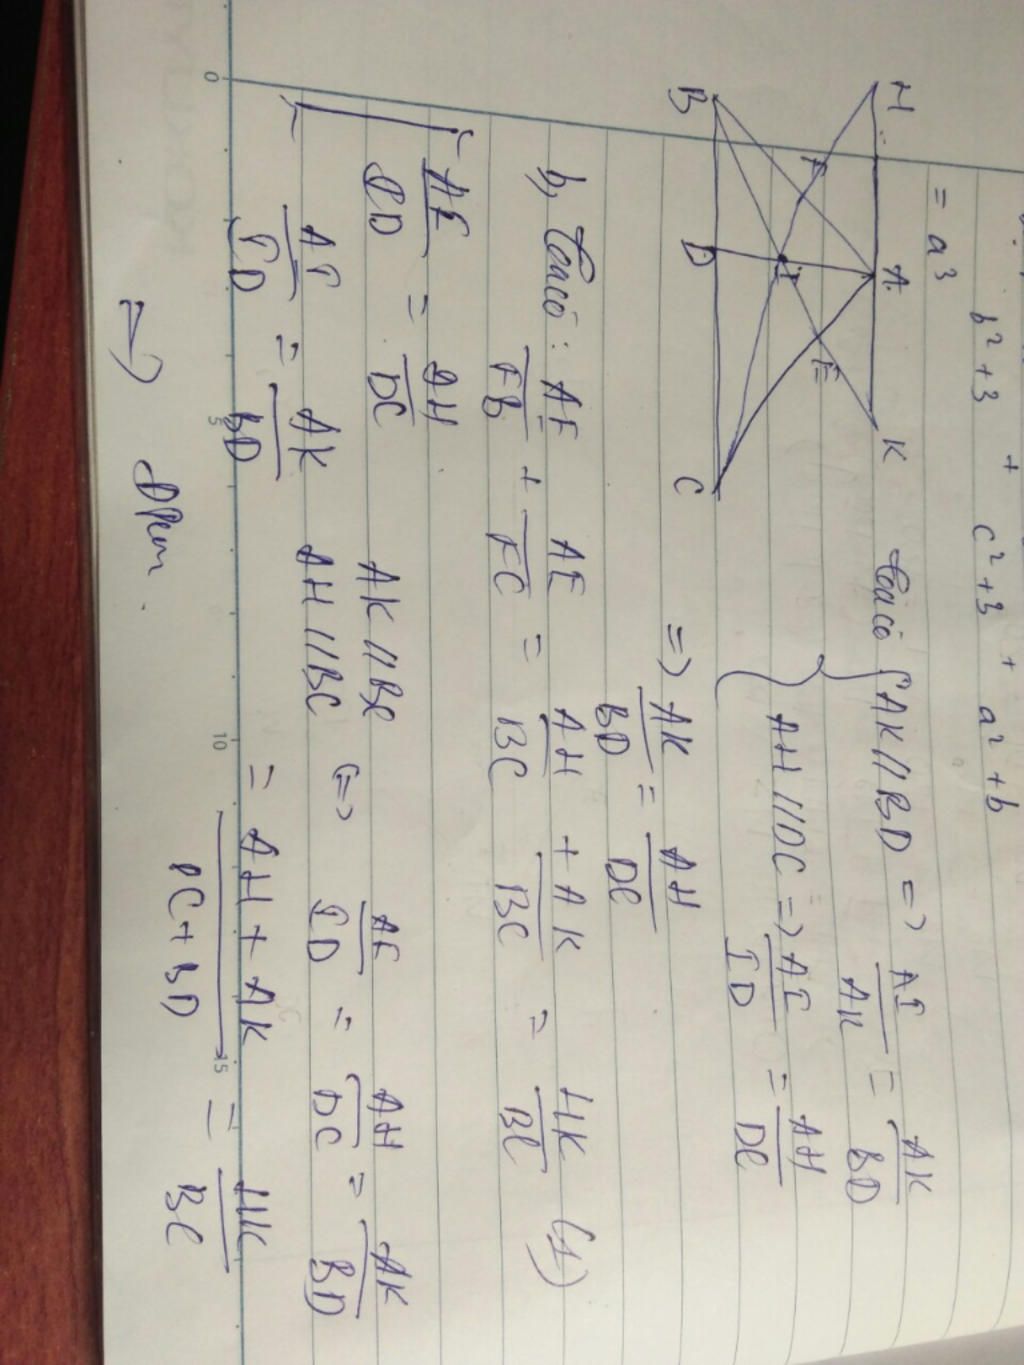 b² + 3 + c² + 3 + a² + b
= a³
H A K
F E
I
B D C
Ta có { AK // BD => AI/AK = AK/BD
AH // DC => AI/ID = AH/DC
=> AK/BD = AH/DC
b, Ta có : AF/FB + AE/FC = AH/BC + AK/BC = HK/BC (1)
AE/ID = AH/DC
AK // BC
AI/ID = AK/BD
AH // BC <=> AE/ID = AH/DC = AK/BD
= AH + AK/DC + BD = HK/BC
=> Đpcm.
0 5 10 15